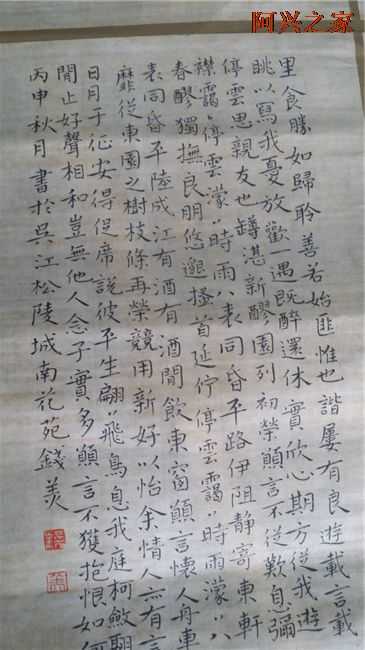 阿兴之家
里食勝如歸聆善若始匪惟也諧屢有良遊載言載
眺以寫我憂放歡一遇既醉還休實欣心期方從我遊
停雲思親友也罇湛新醪園列初榮願言不從歎息彌
襟靄〃停雲濛〃時雨八表同昏平路伊阻靜寄東軒
春醪獨撫良朋悠邈搔首延佇停雲靄〃時雨濛〃八
表同昏平陸成江有酒有酒閒飲東窗願言懷人舟車
靡從東園之樹枝條再榮競用新好以怡余情人亦有言
日月于征安得促席說彼平生翩〃飛鳥息我庭柯斂翮
閒止好聲相和豈無他人念子實多願言不獲抱恨如何
丙申秋月書於吳江松陵城南花苑錢羙